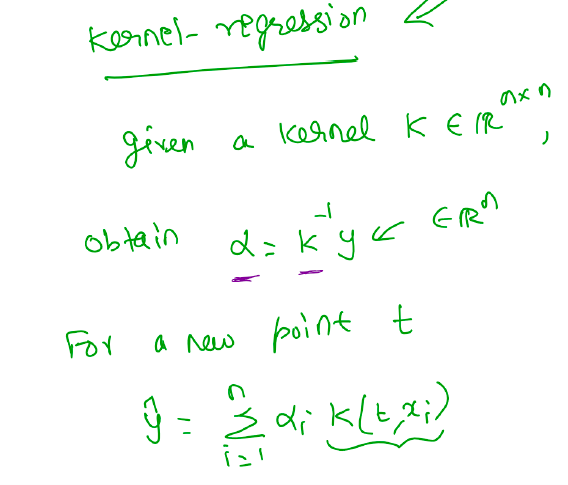 Kernel-regression
given a kernel K ∈ ℝⁿˣⁿ,
obtain α = K⁻¹y ← ∈ℝⁿ
For a new point t
ŷ = Σᵢ₌₁ⁿ αᵢ K(t,xᵢ)